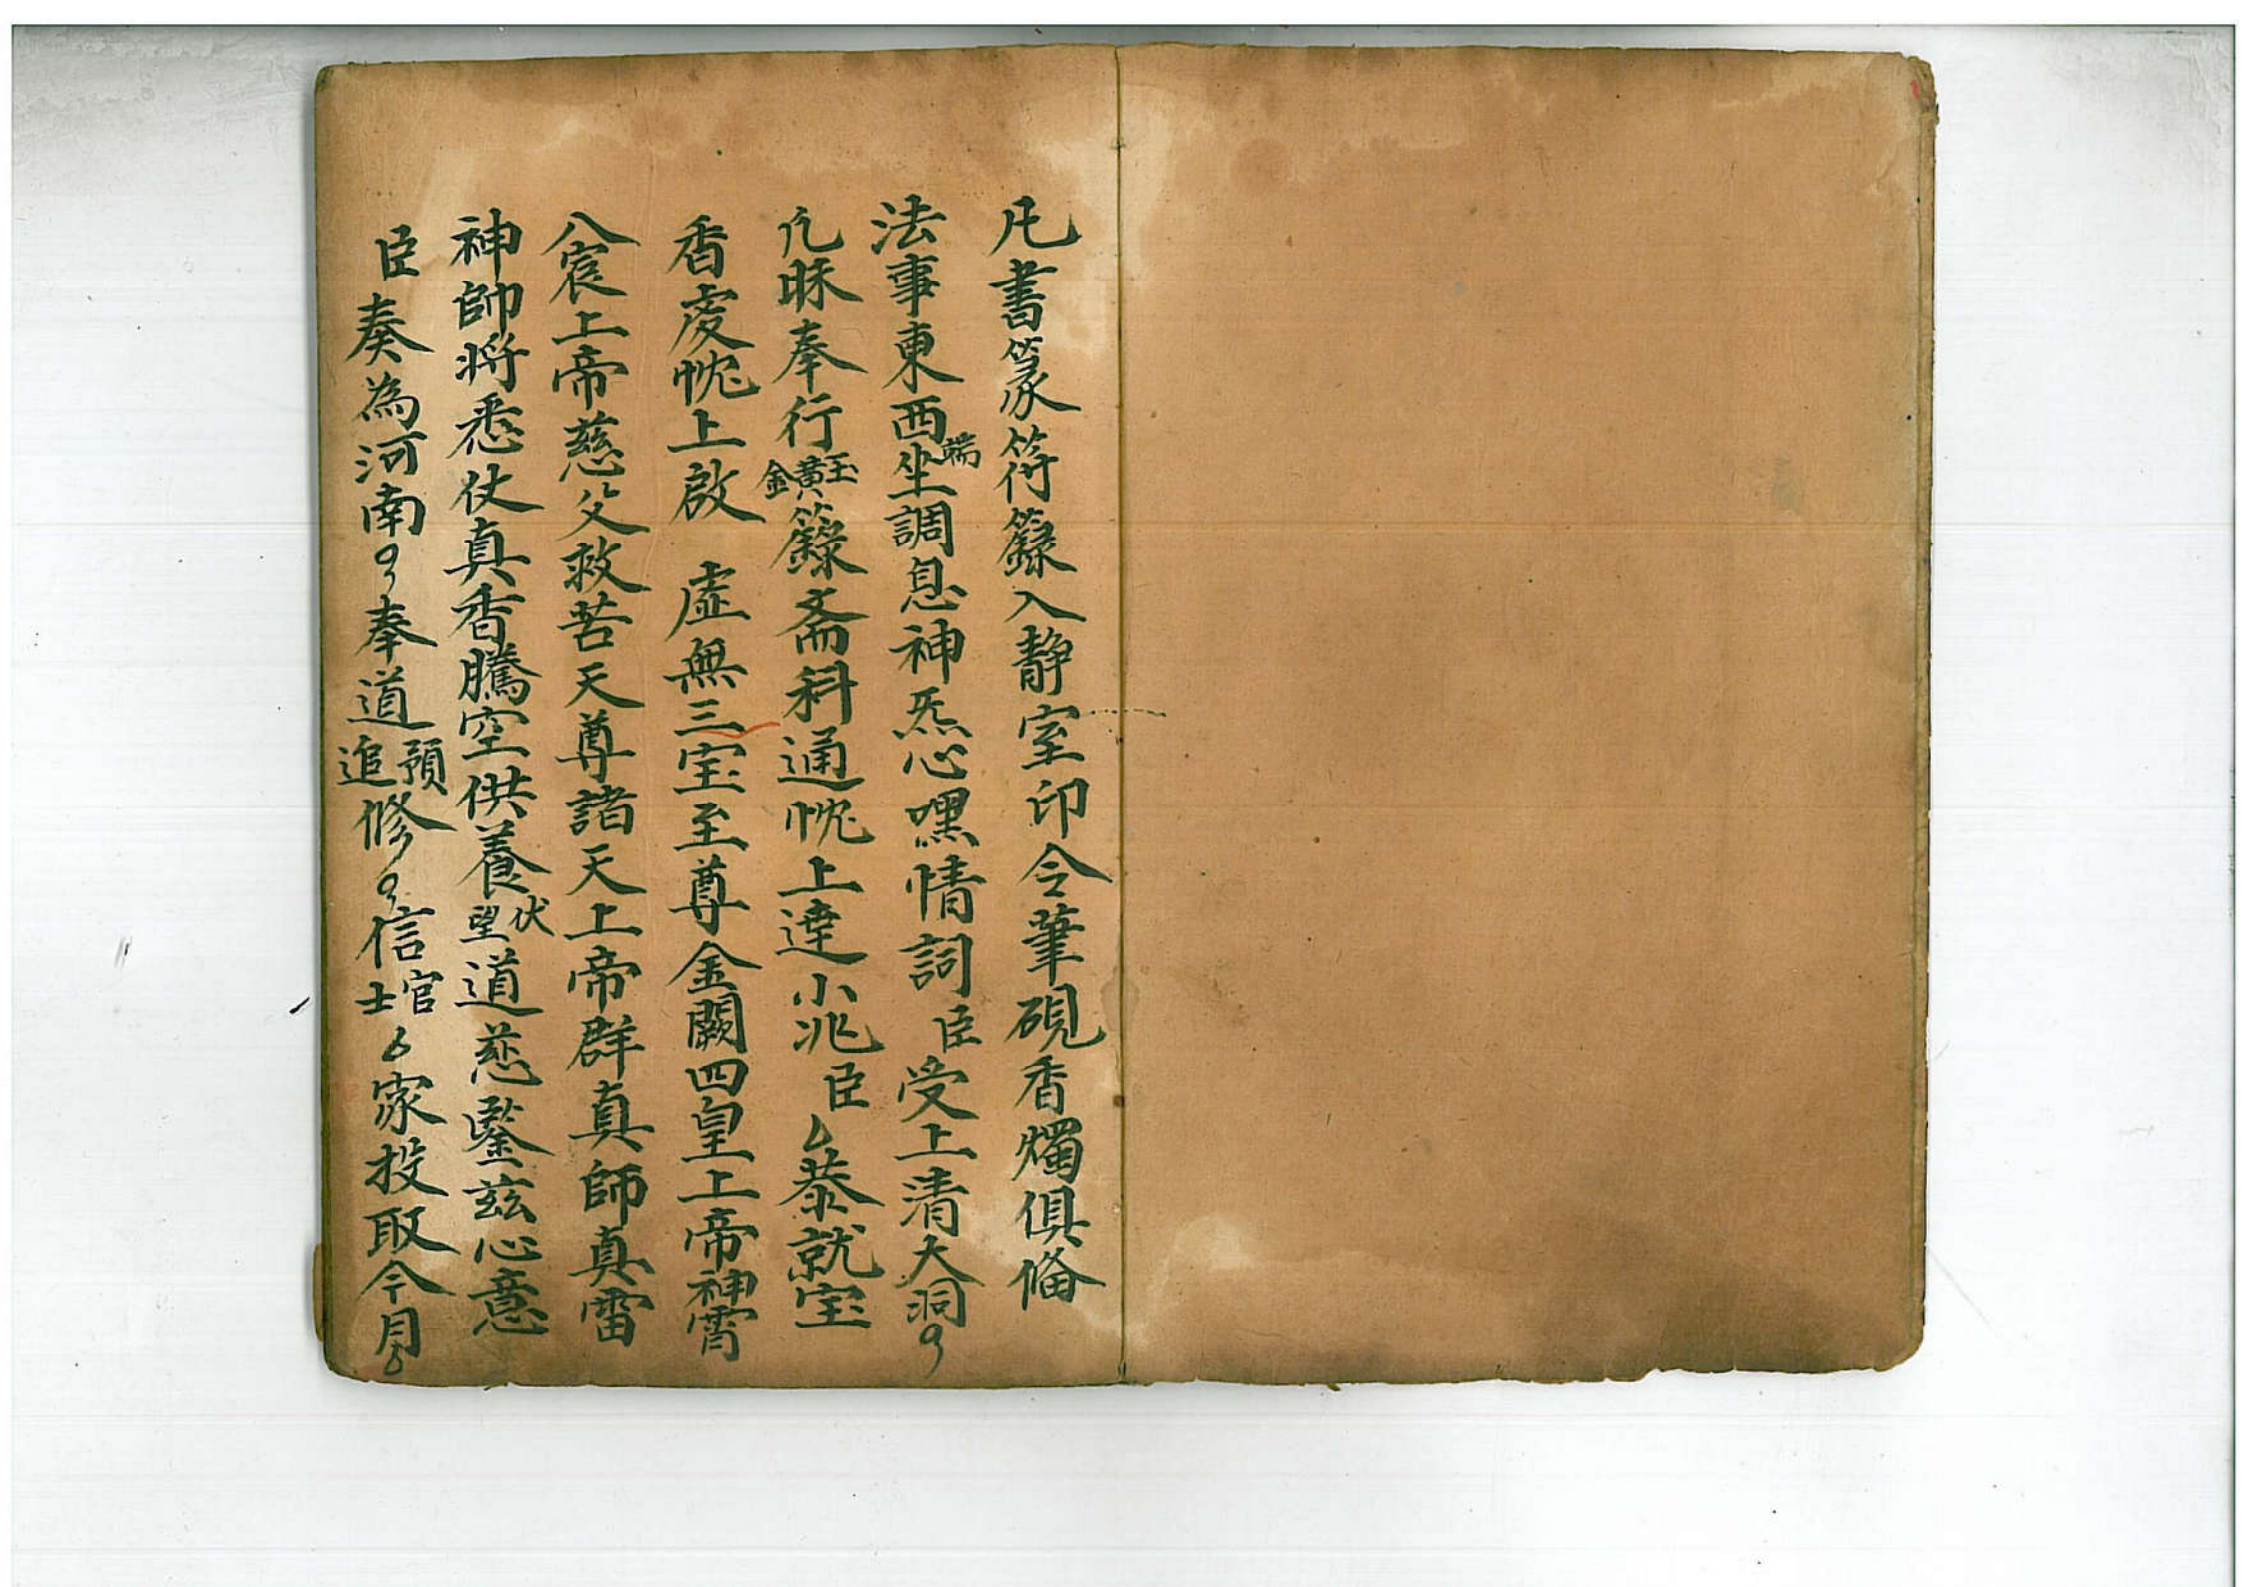 凡書篆符籙入静室印令筆硯香燭俱俻
法事東西端坐調息神炁心嘿情詞臣受上清大洞
凢昧奉行玉黄金籙斋科通忱上達小兆臣厶恭就宝
香虔忱上啟　虛無三宝至尊金闕四皇上帝神霄
八宸上帝慈父救苦天尊諸天上帝群真師真雷
神帥将悉仗真香騰空供養伏望道慈鑒兹心意
臣奏為河南奉道預追修信官士厶家投取今月